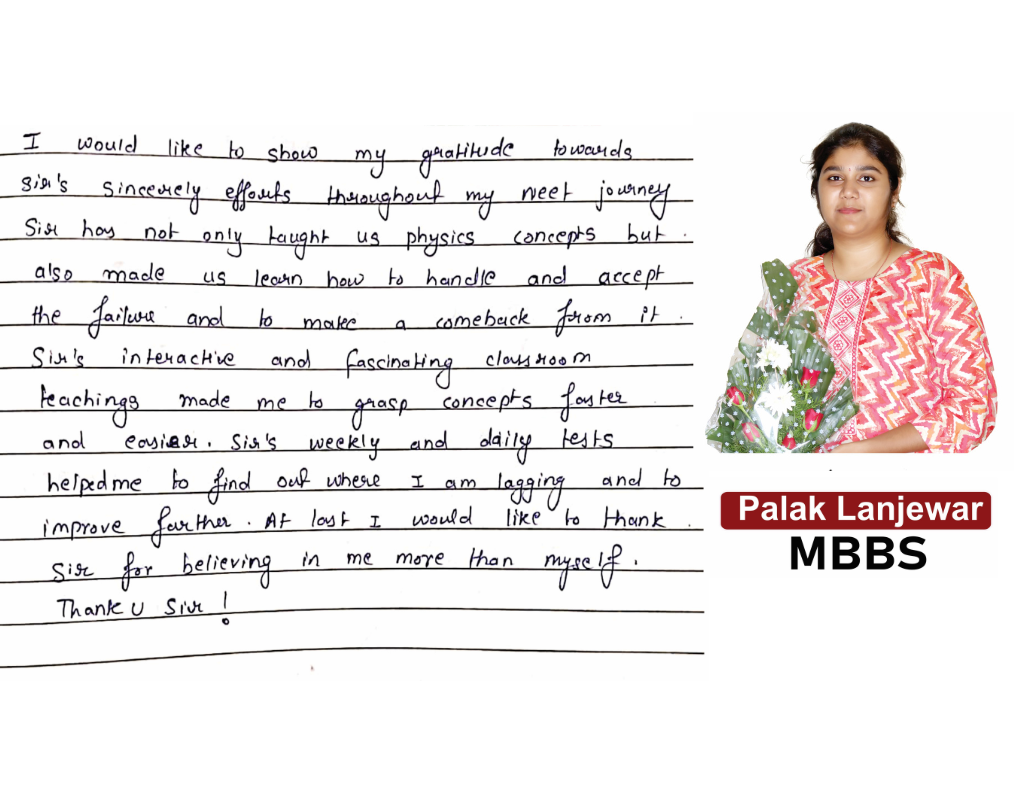 I would like to show my gratitude towards
Sir's sincerely efforts throughout my neet journey
Sir has not only taught us physics concepts but .
also made us learn how to handle and accept
the failure and to make a comeback from it .
Sir's interactive and fascinating classroom
teachings made me to grasp concepts faster
and easier. Sir's weekly and daily tests
helped me to find out where I am lagging and to
improve further. At last I would like to thank .
Sir for believing in me more than myself.
Thank U Sir !
Palak Lanjewar
MBBS